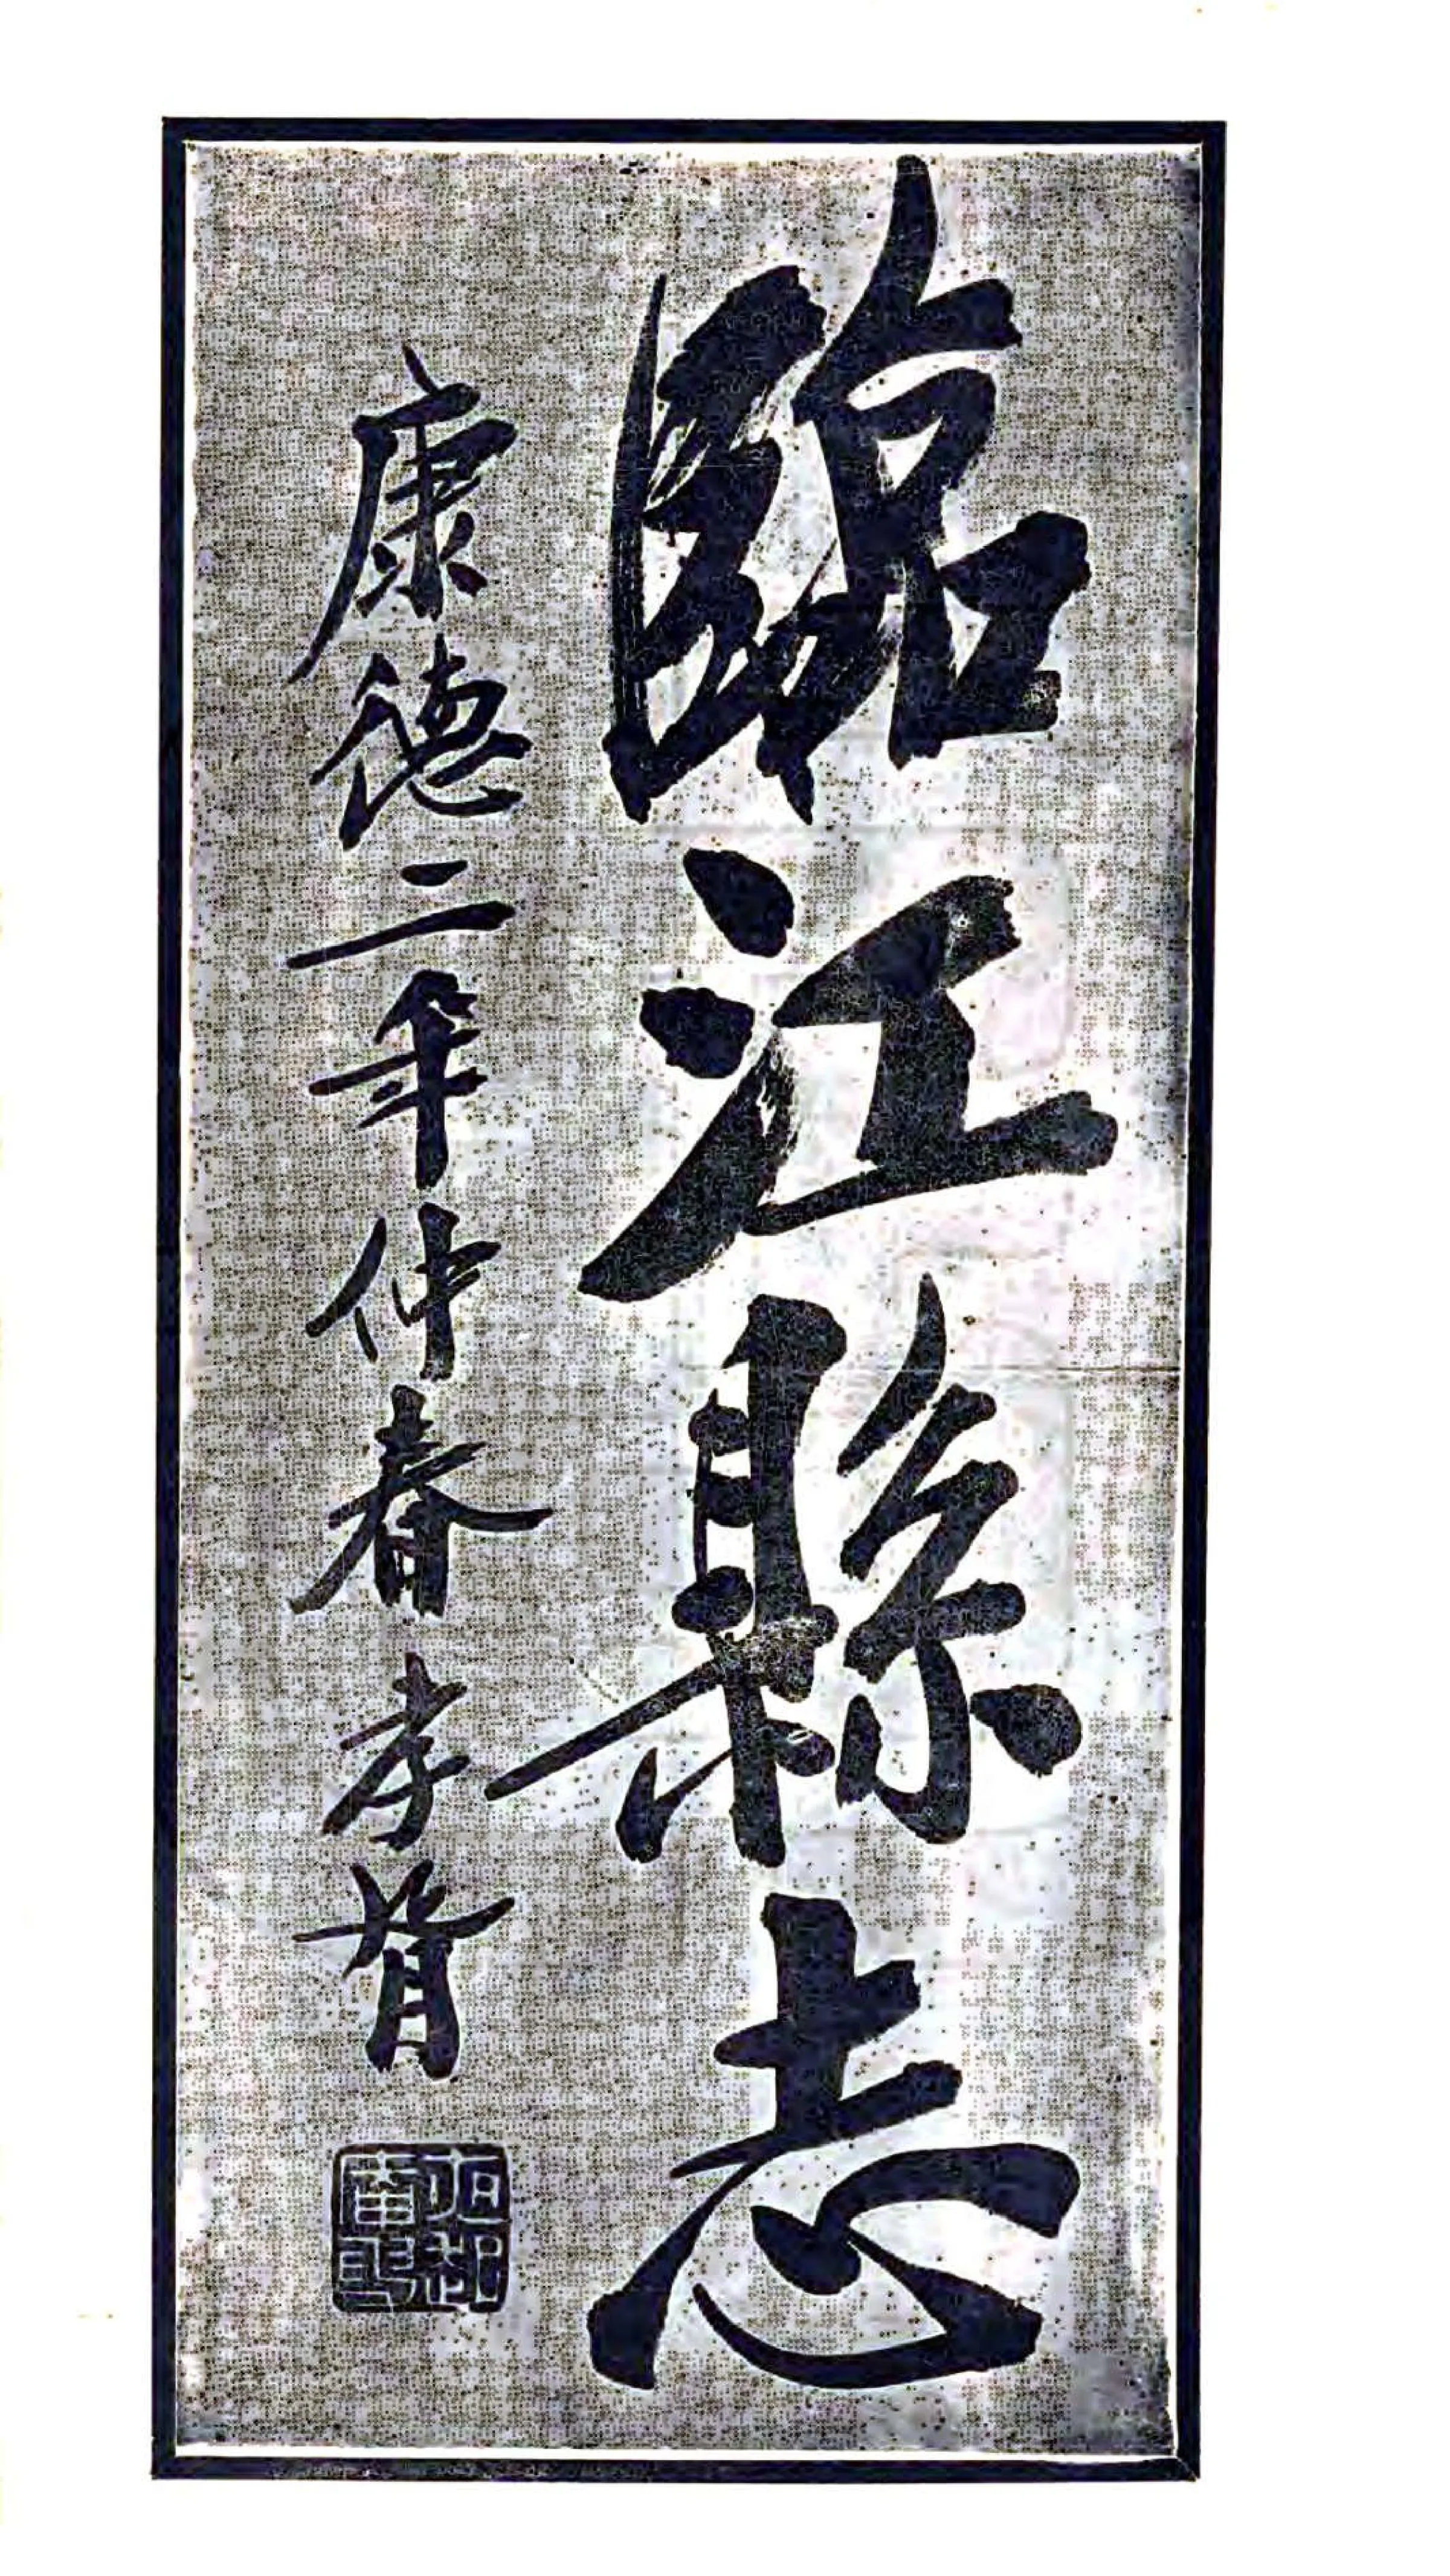 臨江縣志
康德二年仲春 孝胥